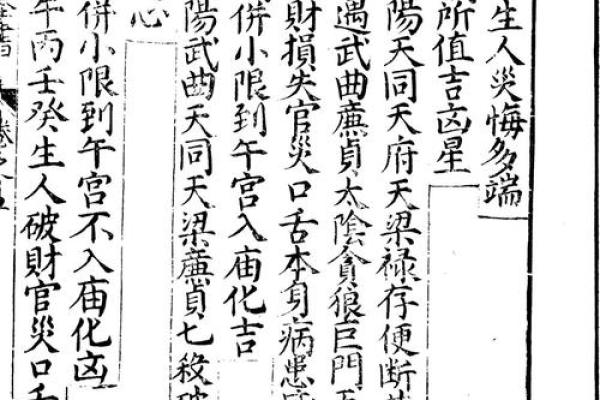 生人災悔多端
所值吉㐫星
陽天同天府天梁禄存便断
遇武曲廉貞太陰貪狼巨門
財損失官災口舌本身病患
併小限到午宫入庙化吉
陽武曲天同天梁廉貞七殺破
併小限到午宫不入庙化㐫
午丙壬癸生人破財官災口舌